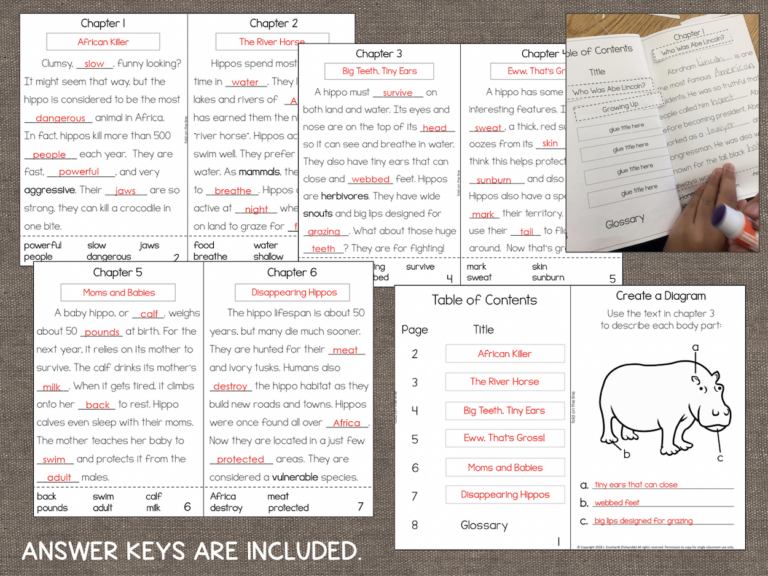 Chapter 1
African Killer
Clumsy, slow, funny looking?
It might seem that way, but the
hippo is considered to be the most
dangerous animal in Africa.
In fact, hippos kill more than 500
people each year. They are
fast, powerful, and very
aggressive. Their jaws are so
strong, they can kill a crocodile in
one bite.
powerful slow jaws
people dangerous
2
Chapter 2
The River Horse
Hippos spend most
time in water. They l
lakes and rivers of A
has earned them the n
"river horse". Hippos ac
swim well. They prefer
water. As mammals, the
to breathe. Hippos
active at night whe
on land to graze for
food water
breathe shallow
Chapter 3
Big Teeth, Tiny Ears
A hippo must survive on
both land and water. Its eyes and
nose are on the top of its head
so it can see and breathe in water.
They also have tiny ears that can
close and webbed feet. Hippos
are herbivores. They have wide
snouts and big lips designed for
grazing. What about those huge
teeth? They are for fighting!
ing survive
bed
4
Chapter 4
Eww, That's Gr
A hippo has some
interesting features. I
sweat, a thick, red su
oozes from its skin
think this helps protec
sunburn and also
Hippos also have a spe
mark their territory.
use their tail to fli
around. Now that's gr
mark skin
sweat sunburn
5
ble of Contents
Title
Who Was Abe Lincoln?
Growing Up
glue title here
glue title here
glue title here
glue title here
Glossary
Chapter 1
Who Was Abe Lincoln?
Abraham Lincoln is one
most famous American
esidents. He was so truthful that
eople called him
efore becoming president, Abe
worked as a lawyer
ongressman. He was also
nown for the tall black
Chapter 5
Moms and Babies
A baby hippo, or calf, weighs
about 50 pounds at birth. For the
next year, it relies on its mother to
survive. The calf drinks its mother's
milk. When it gets tired, it climbs
onto her back to rest. Hippo
calves even sleep with their moms.
The mother teaches her baby to
swim and protects it from the
adult males.
back swim calf
pounds adult milk
6
Chapter 6
Disappearing Hippos
The hippo lifespan is about 50
years, but many die much sooner.
They are hunted for their meat
and ivory tusks. Humans also
destroy the hippo habitat as they
build new roads and towns. Hippos
were once found all over Africa.
Now they are located in a just few
protected areas. They are
considered a vulnerable species.
Africa meat
destroy protected
7
Table of Contents
Page Title
2 African Killer
3 The River Horse
4 Big Teeth, Tiny Ears
5 Eww, That's Gross!
6 Moms and Babies
7 Disappearing Hippos
8 Glossary
1
Create a Diagram
Use the text in chapter 3
to describe each body part:
a
b
c
a. tiny ears that can close
b. webbed feet
c. big lips designed for grazing
ANSWER KEYS ARE INCLUDED.